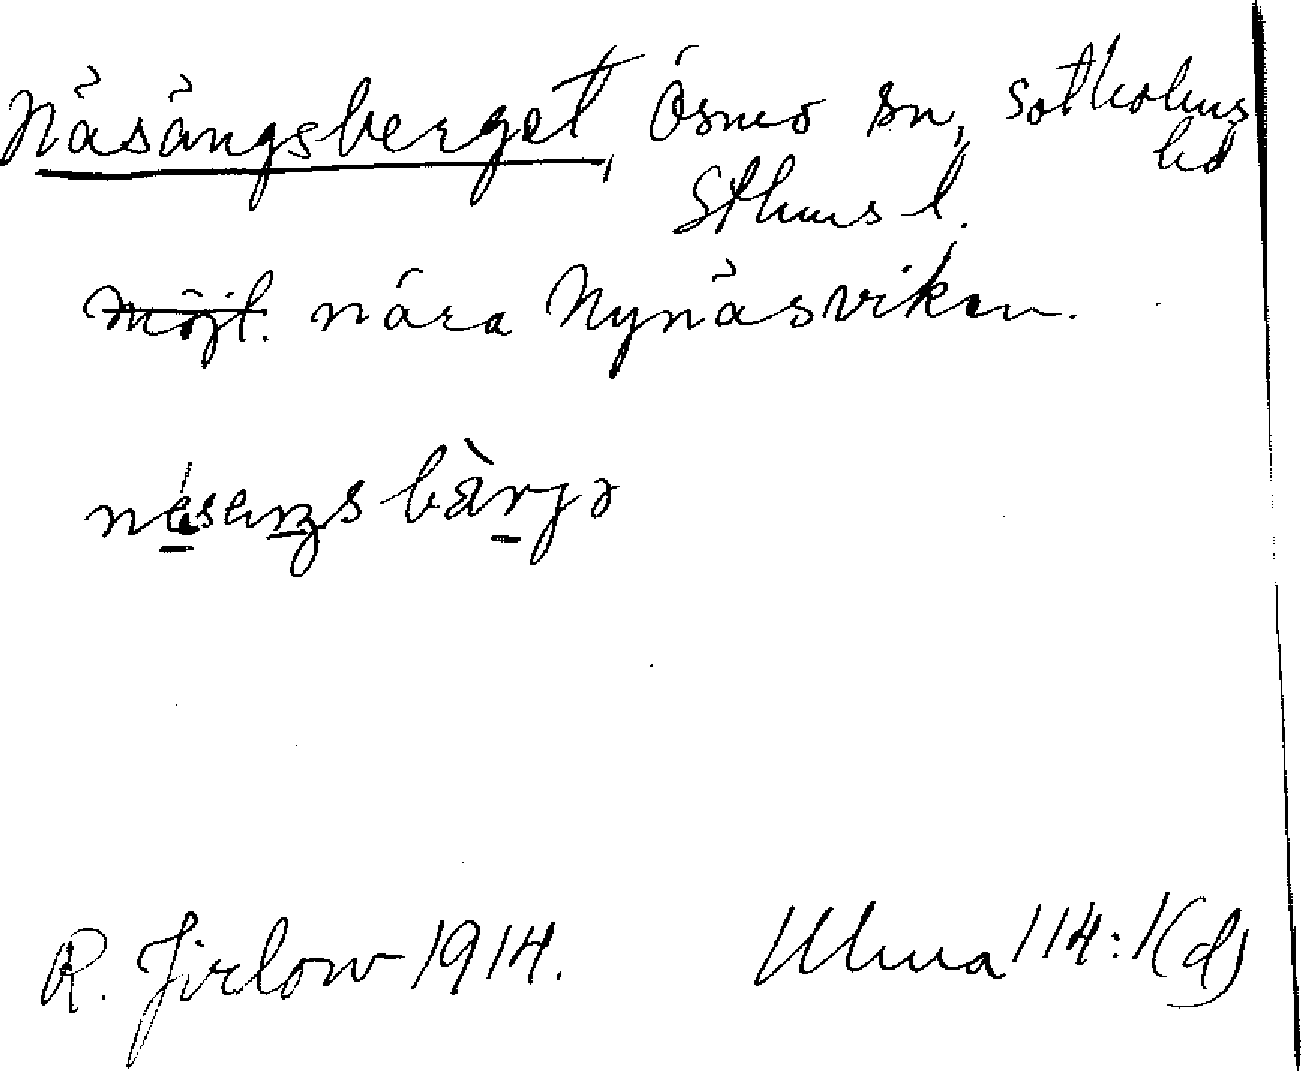 Näsängsberget, Ösmo sn, Sotholms
hd
Sthms l.
möjl. nära Nynäsviken.
néseŋs bà̈rjə
R. Jirlow 1914. Ulma 114:1(d)